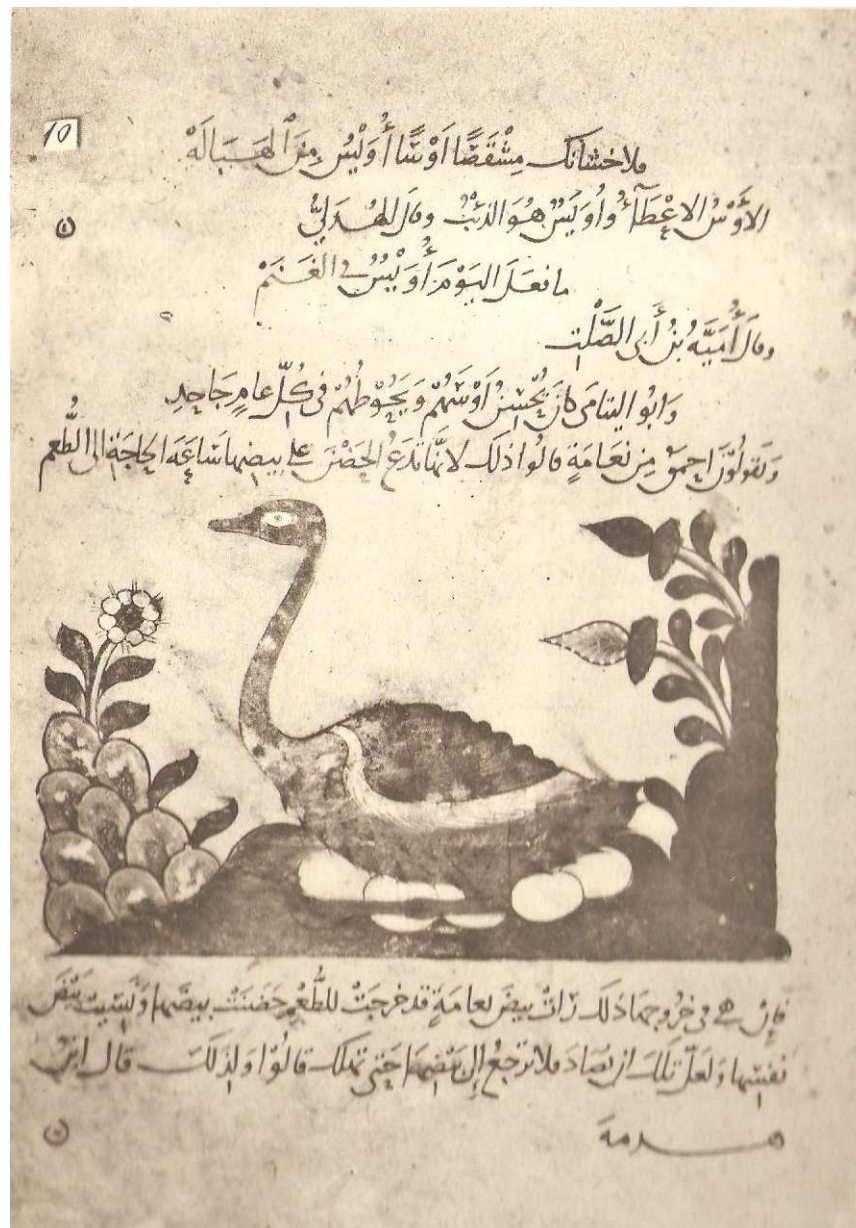 10
فلاحشأنك مِشْقَصًا أَوْسًا أُوَيْسُ مِنَ الْهَبَالَهْ
الأَوْسُ الاعْطَآءُ وأُوَيْسٌ هُوَ الذئبُ وقال الهُذَليُّ
ما فعَلَ اليَوْمَ أُوَيْسٌ في الغَنَمْ
وقال أُمَيَّةُ بنُ أَبي الصَّلْتِ
وَابُو اليتامَى كانَ يُحْسِنُ أَوْسَهُمْ وَيَحُوْطُهُمْ في كُلِّ عامٍ جَاحِدِ
وَيَقولُوْنَ احمَق مِن نَعَامَةٍ قالُوا ذلك لانَّها تَدَعُ الحَضْنَ على بيضِها سَاعَةَ الحاجَةِ الى الطُّعم
فإن هي في خروجها ذلك رَاتْ بيضَ نعامَةٍ قد خرجَتْ للطُّعْمِ حَضَنَتْ بيضَها وَنَسِيَتْ بَيْضَ
نفسِها وَلَعَلَّ تلكَ ان تُصَادَ فلا ترجعُ إلى بَيْضِها حَتى تهلك قالُوْا وَلِذلكَ قال ابنُ
هرمة